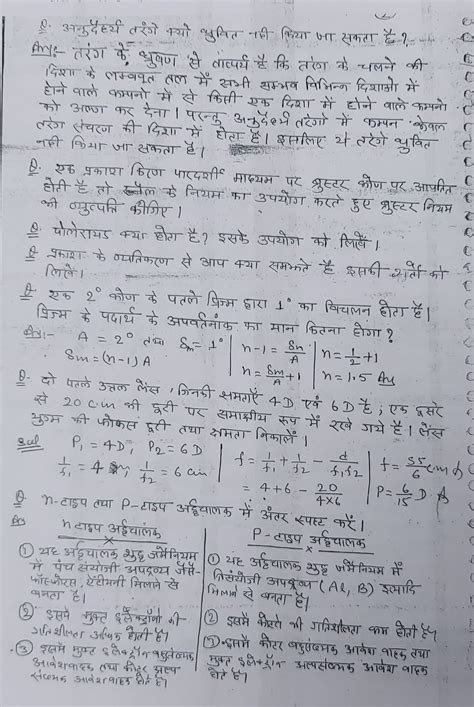 Q. अनुदैर्ध्य तरंगे क्यो ध्रुवित नही किया जा सकता है?
Ans:- तरंग के ध्रुवण से तात्पर्य है कि तरंग के चलने की
दिशा के लम्बवत तल में सभी सम्भव विभिन्न दिशाओ में
होने वाले कम्पनो में से किसी एक दिशा में होने वाले कम्पनो
को अलग कर देना। परन्तु अनुदैर्ध्य तरंगो में कम्पन केवल
तरंग संचरण की दिशा में होता है। इसलिए ये तरंगे ध्रुवित
नही किया जा सकता है।
Q. एक प्रकाश किरण पारदर्शी माध्यम पर ब्रुस्टर कोण पर आपतित
होती है तो स्नैल के नियम का उपयोग करते हुए ब्रुस्टर नियम
की व्युत्पत्ति कीजिए।
Q. पोलेरायड क्या होता है? इसके उपयोग को लिखें।
Q प्रकाश के व्यतिकरण से आप क्या समझते हैं इसकी शर्तो को
लिखें।
Q. एक 2° कोण के पतले प्रिज्म द्वारा 1° का विचलन होता है।
प्रिज्म के पदार्थ के अपवर्तनांक का मान कितना होगा?
Ans:- A = 2° तथा δm = 1° | n-1 = δm/A | n = 1/2 + 1
δm = (n-1) A | n = δm/A + 1 | n = 1.5 Ans
Q. दो पतले उत्तल लेंस, जिनकी क्षमताएँ 4D एवं 6D है, एक दूसरे
से 20 cm की दूरी पर समाक्षीय रूप में रखे गये है। लेंस
युग्म की फोकस दूरी तथा क्षमता निकालें।
Sol P₁ = 4D, P₂ = 6D | f = 1/f₁ + 1/f₂ - d/f₁f₂
1/f₁ = 4 1/f₂ = 6 cm | = 4 + 6 - 20/4×6
Q. n-टाइप तथा P-टाइप अर्द्धचालक में अंतर स्पष्ट करें।
Ans n टाइप अर्द्धचालक
P-टाइप अर्द्धचालक
① यह अर्द्धचालक शुद्ध जर्मेनियम
में पंच संयोजी अपद्रव्य जैसे-
फॉस्फोरस, ऐंटीमनी मिलाने से
बनता है।
② इसमें मुक्त इलेक्ट्रॉनो की
गतिशीलता अधिक होती है।
③ इसमें मुक्त इलेक्ट्रॉन बहुसंख्यक
आवेश वाहक तथा कोटर अल्प
संख्यक आवेश वाहक होते है।
① यह अर्द्धचालक शुद्ध जर्मेनियम में
त्रिसंयोजी अपद्रव्य (Al, B) इत्यादि
मिलाने से बनता है।
② इसमें कोटरो की गतिशीलता कम होती है।
③ इसमें कोटर बहुसंख्यक आवेश वाहक तथा
मुक्त इलेक्ट्रॉन अल्पसंख्यक आवेश वाहक
होते है।